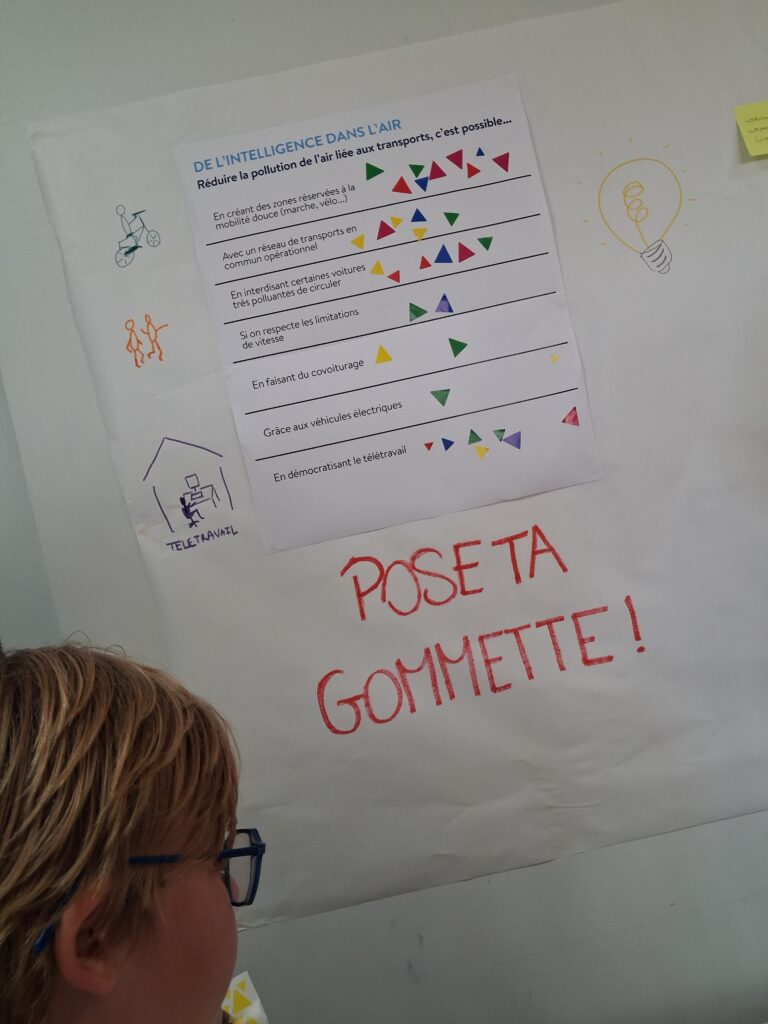 DE L'INTELLIGENCE DANS L'AIR
Réduire la pollution de l'air liée aux transports, c'est possible...
En créant des zones réservées à la
mobilité douce (marche, vélo...)
Avec un réseau de transports en
commun opérationnel
En interdisant certaines voitures
très polluantes de circuler
Si on respecte les limitations
de vitesse
En faisant du covoiturage
Grâce aux véhicules électriques
En démocratisant le télétravail
TELETRAVAIL
POSE TA
GOMMETTE !